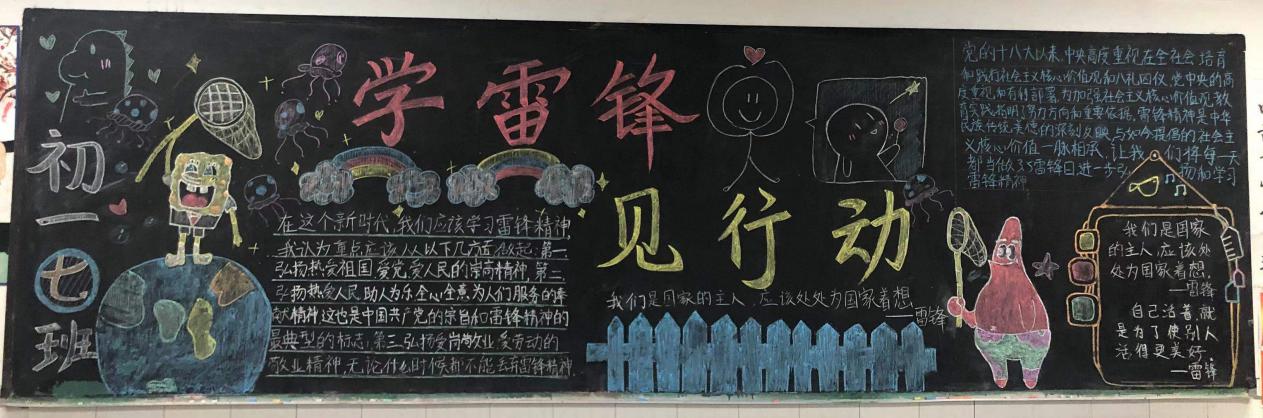 初一七班
学雷锋
见行动
在这个新时代,我们应该学习雷锋精神
我认为重点应该从以下几方面做起:第一
弘扬热爱祖国爱党,爱人民的崇高精神,第二
弘扬热爱人民,助人为乐全心全意为人们服务的奉
献精神这也是中国共产党的宗旨和雷锋精神的
最典型的标志,第三弘扬爱岗敬业爱劳动的
敬业精神,无论什么时候都不能丢弃雷锋精神.
我们是国家的主人,应该处处为国家着想
——雷锋
党的十八大以来,中央高度重视在全社会培育
和践行社会主义核心价值观和八礼四仪,党中央的高
度重视和有利部署,为加强社会主义核心价值观教
育实践指明了努力方向和重要依据,雷锋精神是中华
民族传统美德的深刻反映,与如今提倡的社会主
义核心价值一脉相承,让我们将每一天
都当做3.5雷锋日,进一步弘扬和学习
雷锋精神
我们是国家
的主人,应该处
处为国家着想.
——雷锋
自己活着,就
是为了使别人
活得更美好.
——雷锋